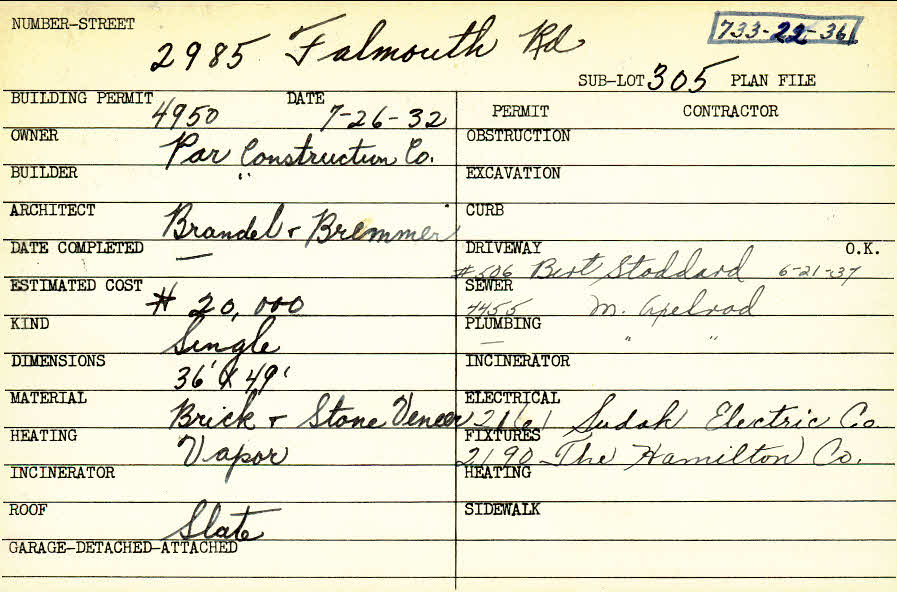 NUMBER-STREET 2985 Falmouth Rd 733-22-36
SUB-LOT 305 PLAN FILE
BUILDING PERMIT 4950 DATE 7-26-32
OWNER Par Construction Co.
BUILDER "
ARCHITECT Brandel + Bremmer
DATE COMPLETED —
ESTIMATED COST # 20,000
KIND Single
DIMENSIONS 36' X 49'
MATERIAL Brick + Stone Veneer
HEATING Vapor
INCINERATOR
ROOF Slate
GARAGE-DETACHED-ATTACHED
PERMIT CONTRACTOR
OBSTRUCTION
EXCAVATION
CURB
DRIVEWAY O.K.
#506 Bert Stoddard 6-21-37
SEWER
4455 M. Axelrod
PLUMBING
— " "
INCINERATOR
ELECTRICAL
2161 Electric Co
FIXTURES
2190 The Hamilton Co.
HEATING
SIDEWALK